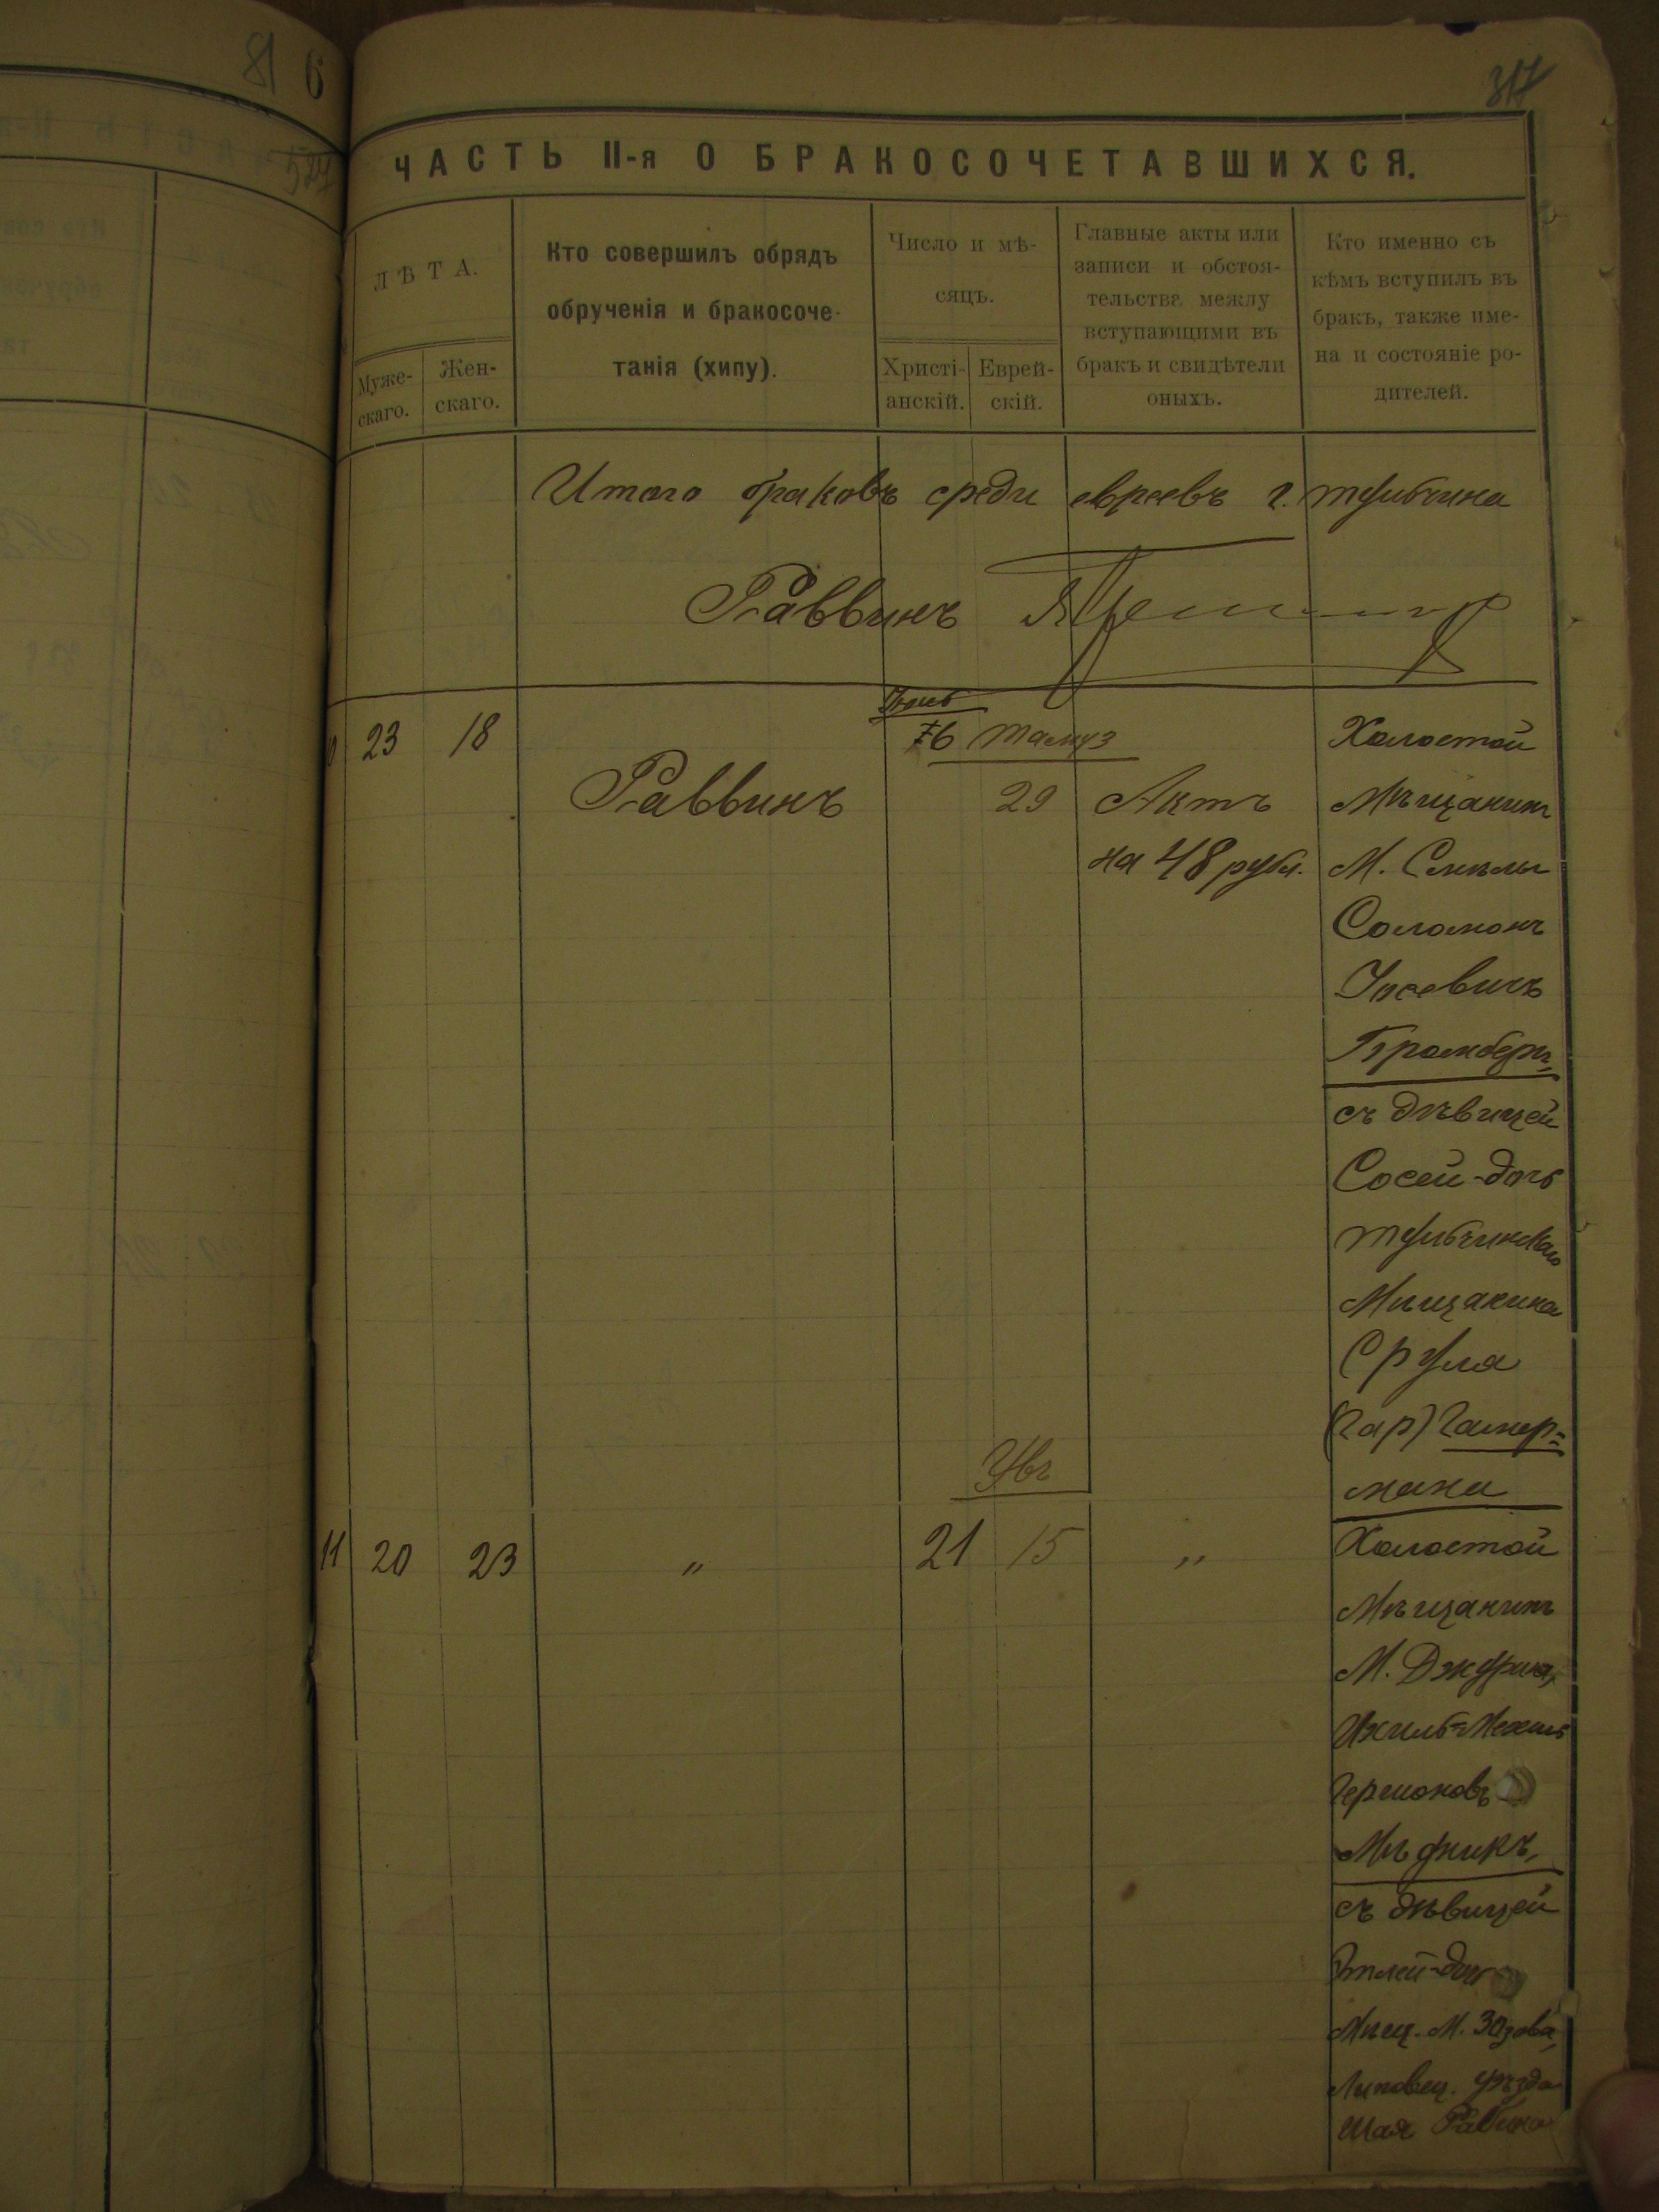 81 6
527
317
ЧАСТЬ II-я О БРАКОСОЧЕТАВШИХСЯ.
ЛѢТА.
Муже-
скаго.
Жен-
скаго.
Кто совершилъ обрядъ
обрученія и бракосоче-
танія (хипу).
Число и мѣ-
сяцъ.
Христі-
анскій.
Еврей-
скій.
Главные акты или
записи и обстоя-
тельства между
вступающими въ
бракъ и свидѣтели
оныхъ.
Кто именно съ
кѣмъ вступилъ въ
бракъ, также име-
на и состояніе ро-
дителей.
Итого браковъ среди евреевъ г. Тульчина
Раввинъ
23 18
Раввинъ
Тамуз
29
Актъ
на 48 рубл.
Холостой
Мѣщанинъ
М. Смѣлы
Соломонъ
Іосевичъ
Бромбергъ,
съ дѣвицей
Сосей-дочь
Тульчинскаго
Мѣщанина
Срула
(Гар) Гамер=
мана
11 20 23 " 21 15 "
Холостой
Мѣщанинъ
М. Джурина,
Ихиль=Мехель
Гершоновъ
Мѣдникъ,
съ дѣвицей
Этлей-дочь
Мѣщ. М.
Липовец. уѣзда
Шая